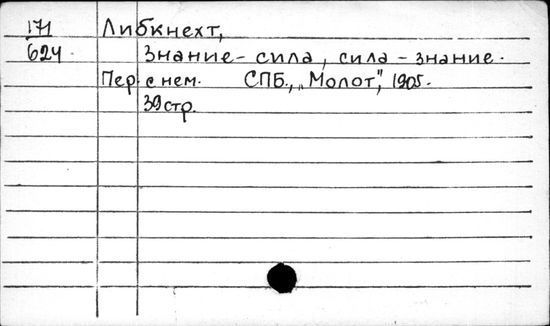 171 Либкнехт,
624 Знание - сила, сила - знание.
Пер с нем. СПБ., „Молот", 1905.
39 стр.